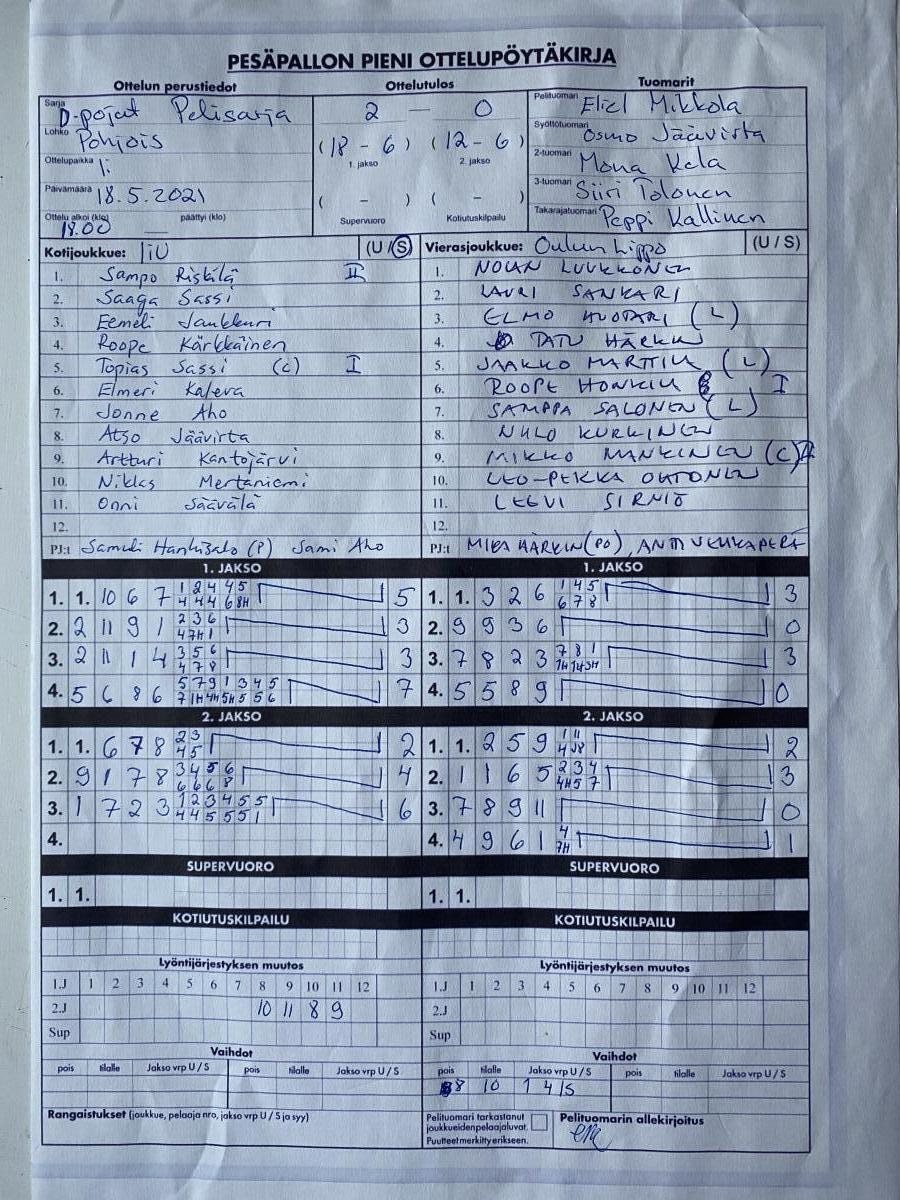 PESÄPALLON PIENI OTTELUPÖYTÄKIRJA
Ottelun perustiedot Ottelutulos Tuomarit
Sarja D-pojat Pelisarja 2 — 0 Pelituomari Eliel Mikkola
Lohko Pohjois (18 - 6) (12 - 6) Syöttötuomari Osmo Jäävirta
1. jakso 2. jakso
Ottelupaikka Ii 2-tuomari Mona Kela
Päivämäärä 18.5.2021 ( - ) ( - ) 3-tuomari Siiri Tolonen
Ottelu alkoi (klo) 18.00 päättyi (klo) Supervuoro Kotiutuskilpailu Takarajatuomari Peppi Kallinen
Kotijoukkue: IiU (U / S) Vierasjoukkue: Oulun Lippo (U / S)
1. Sampo Riskilä II 1. NOLAN LUUKKONEN
2. Saaga Sassi 2. LAURI SANKARI
3. Eemeli Jaukkuri 3. ELMO HUOTARI (L)
4. Roope Kärkkäinen 4. TATU HÄRKIN
5. Topias Sassi (c) I 5. JAAKKO MARTTILA (L)
6. Elmeri Kaleva 6. ROOPE I
7. Jonne Aho 7. SAMPPA SALONEN (L)
8. Atso Jäävirta 8. KURKINEN
9. Artturi Kantojärvi 9. MIKKO MANKINEN (C)
10. Niklas Mertaniemi 10. LEO-PEKKA OHTONEN
11. Onni Säävälä 11. LEEVI SIRNIÖ
12. 12.
PJ:t Samuli (P) Sami Aho PJ:t MIKA HÄRKIN (PO), ANTTI VEHKAPERÄ
1. JAKSO 1. JAKSO
1. 1. 10 6 7 1 2 4 4 5 5 1. 1. 3 2 6 1 4 5 3
4 4 4 6 8H 6 7 8
2. 2 11 9 1 2 3 6 3 2. 9 9 3 6 0
4 7H 1
3. 2 11 1 4 3 5 6 3 3. 7 8 2 3 7 8 1 3
4 7 8 1H 1H 3H
4. 5 6 8 6 5 7 9 1 3 4 5 7 4. 5 5 8 9 0
7 1H 4H 5H 5 5 6
2. JAKSO 2. JAKSO
1. 1. 6 7 8 2 3 2 1. 1. 2 5 9 1 11 2
4 5
2. 9 1 7 8 3 4 5 6 4 2. 1 1 6 5 2 3 4 3
6 6 6 8 4H 5 7
3. 1 7 2 3 1 2 3 4 5 5 6 3. 7 8 9 11 0
4 4 5 5 5 1
4. 4. 4 9 6 1 4 1
7H
SUPERVUORO SUPERVUORO
1. 1. 1. 1.
KOTIUTUSKILPAILU KOTIUTUSKILPAILU
Lyöntijärjestyksen muutos Lyöntijärjestyksen muutos
1.J 1 2 3 4 5 6 7 8 9 10 11 12 1.J 1 2 3 4 5 6 7 8 9 10 11 12
2.J 10 11 8 9 2.J
Sup Sup
Vaihdot Vaihdot
pois tilalle Jakso vrp U / S pois tilalle Jakso vrp U / S pois tilalle Jakso vrp U / S pois tilalle Jakso vrp U / S
8 10 1 4 /S
Rangaistukset (joukkue, pelaaja nro, jakso vrp U / S ja syy) Pelituomari tarkastanut Pelituomarin allekirjoitus
joukkueiden pelaajaluvat.
Puutteet merkitty erikseen.